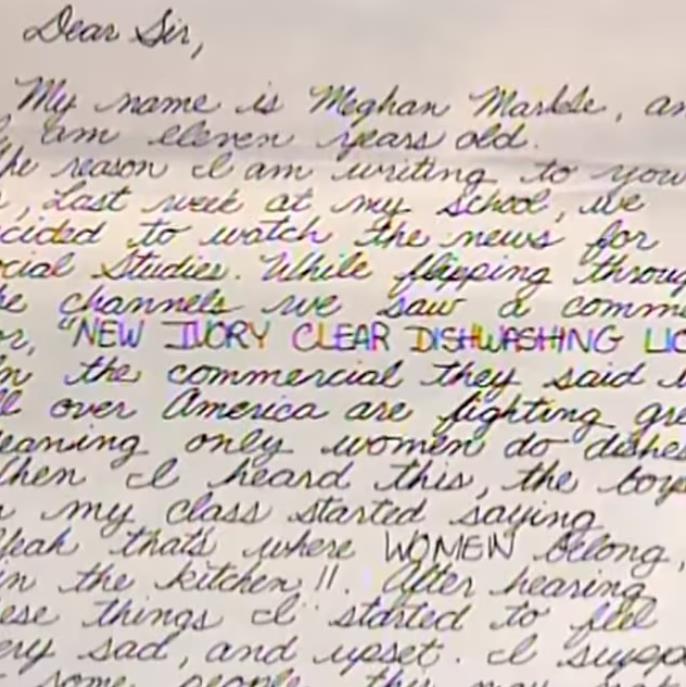 Dear Sir,
My name is Meghan Markle, an
I am eleven years old.
he reason I am writing to you
s, Last week at my school, we
cided to watch the news for
ocial Studies. While flipping throug
he channels we saw a comme
or, "NEW IVORY CLEAR DISHWASHING LIQ
In the commercial they said w
ll over America are fighting gre
eaning only women do dishes
hen I heard this, the boys
n my class started saying
Yeah thats where WOMEN belong,
in the kitchen!!. After hearing
ese things I started to feel
ery sad, and upset. I supp
some people this may